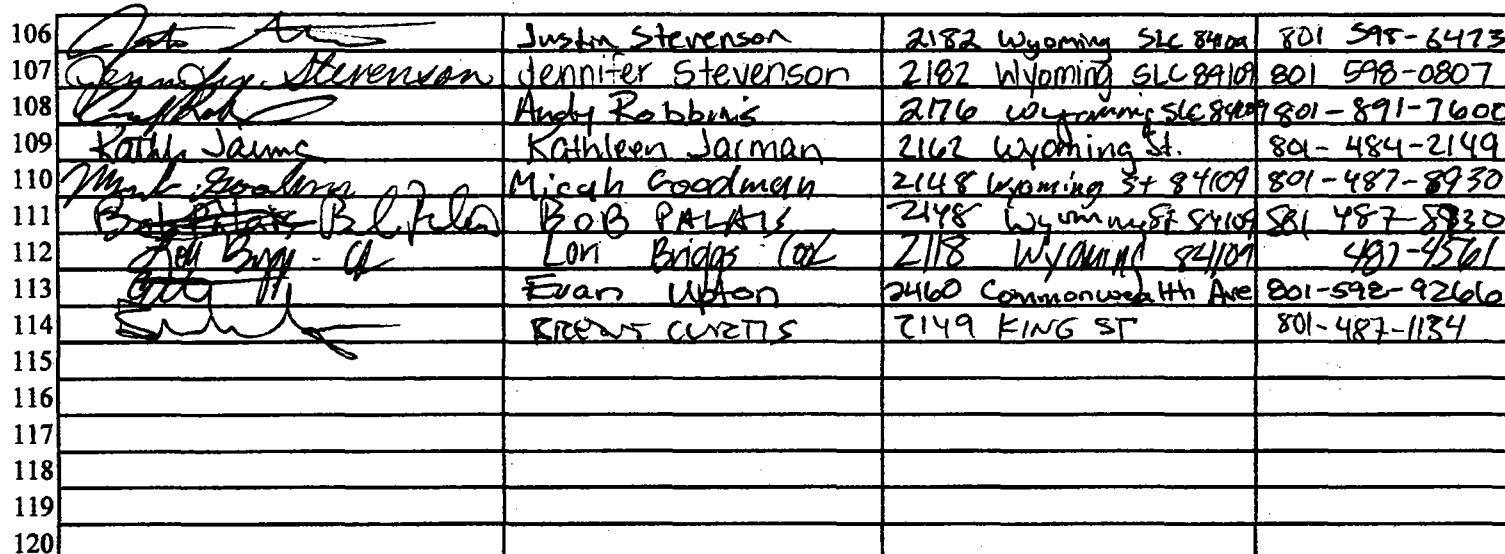 106 Justin Stevenson 2182 Wyoming SLC 84109 801 598-6473
107 Jennifer Stevenson Jennifer Stevenson 2182 Wyoming SLC 84109 801 598-0807
108 Andy Robbins 2176 Wyoming SLC 84109 801-891-7600
109 Kathleen Jarman 2162 Wyoming St. 801-484-2149
110 Micah Goodman 2148 Wyoming St 84109 801-487-8930
111 BOB PALAIS 2148 Wyoming St 84109 801 487-8930
112 Lori Briggs 2118 Wyoming 84109 487-4561
113 Evan Upton 2460 Commonwealth Ave 801-598-9266
114 BRENT CURTIS 2149 KING ST 801-487-1134
115
116
117
118
119
120